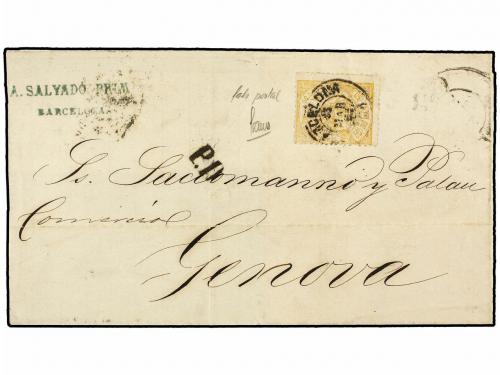 A. SALVADÓ PRIM
BARCELONA
falso postal
BARCELONA
MAR
P.D.
Ss. Saccomanno y Palau
Comercio
Genova